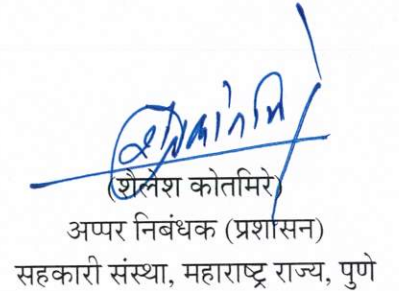 (शैलेश कोतमिरे)
अप्पर निबंधक (प्रशासन)
सहकारी संस्था, महाराष्ट्र राज्य, पुणे